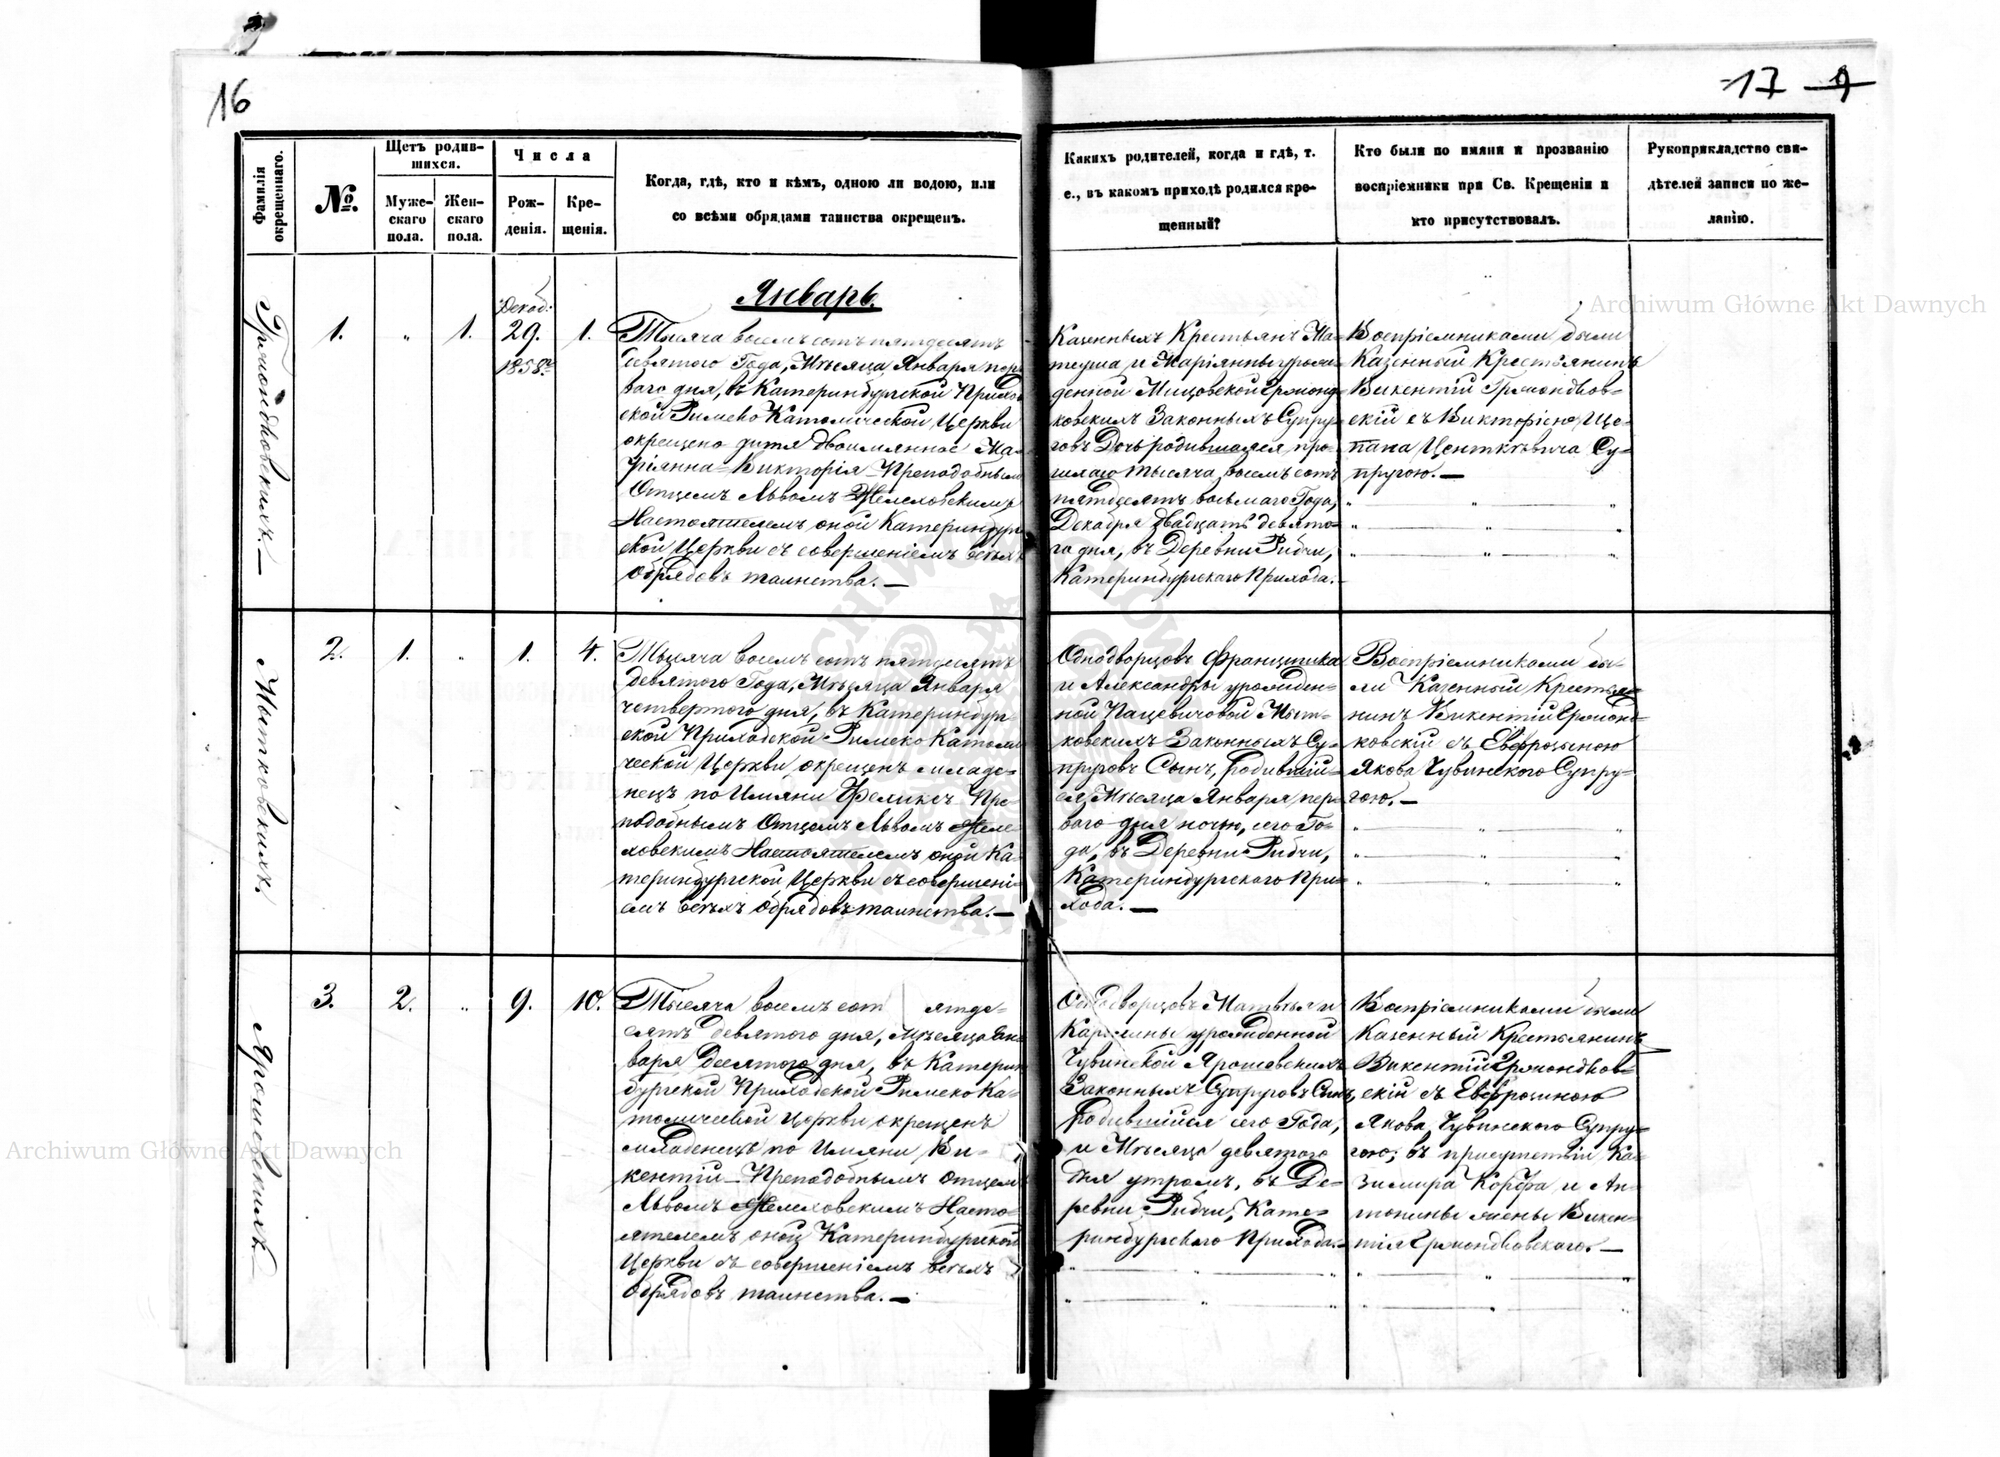 16
17 9
Фамилія окрещеннаго.
№.
Щетъ родив-
шихся.
Муже-
скаго
пола.
Жен-
скаго
пола.
Числа
Рож-
денія.
Кре-
щенія.
Когда, гдѣ, кто и кѣмъ, одною ли водою, или
со всѣми обрядами таинства окрещенъ.
Какихъ родителей, когда и гдѣ, т.
е., въ какомъ приходѣ родился кре-
щенный?
Кто были по имяни и прозванію
воспріемники при Св. Крещеніи и
кто присутствовалъ.
Рукоприкладство сви-
дѣтелей записи по же-
ланію.
Январь.
Грмондковскихъ.—
1.
"
1.
Декаб:
29.
1858го
1.
Тысяча восемъ сотъ пятдесятъ
девятого Года, Мѣсяца Января пер
вого дня, въ Катеринбургской Приход
ской Римско Католической Церкви
окрещено дитя двоимянное Ма-
ріянна-Викторія Преподобным
Отцемъ Львомъ Желеховскимъ
Настоятелемъ оной Катеринбург
ской Церкви съ совершеніемъ всѣхъ
Обрядовъ таинства.—
Казенныхъ Крестьянъ Ма-
теуша и Маріянны урожд-
денной Мицовской Грмонд
ковскихъ Законныхъ Супру-
говъ Дочь родившаяся про-
шлаго тысяча восемъ сотъ
пятдесятъ восьмаго Года,
Декабря двадцать девято-
го дня, въ Деревни Рибчи,
Катеринбургскаго Прихода.—
Воспріемниками были
Казенный Крестьянинъ
Викентій Грмондков-
скій съ Викторіею Ще-
пана Центкѣвича Су-
пругою.—
Мытковскихъ.
2.
1.
"
1.
4.
Тысяча восемъ сотъ пятдесятъ
девятого Года, Мѣсяца Января
четвертого дня, въ Катеринбург
ской Приходской Римско Католи
ческой Церкви окрещенъ младе-
нецъ по Имяни Феликсъ Пре-
подобнымъ Отцемъ Львомъ Желе-
ховскимъ Настоятелемъ оной Ка-
теринбургской Церкви съ совершені-
емъ всѣхъ Обрядовъ таинства.—
Однодворцовъ Францишка
и Александры урожден-
ной Пацевичовой Мыт-
ковскихъ Законныхъ Су-
пруговъ Сынъ, родившій-
ся Мѣсяца Января пер-
вого дня ночью, сего Го-
да, въ Деревни Рибчи,
Катеринбургскаго При-
хода.—
Воспріемниками бы-
ли Казенный Крестья-
нинъ Викентій Грмонд-
ковскій съ Евфрозиною
Якова Чувинского Супру-
гою.—
Ярошевскихъ
3.
2.
"
9.
10.
Тысяча восемъ сот ятде-
сятъ девятого дня, Мѣсяца Ян-
варя Десятого дня, въ Катерин
бургской Приходской Римско Ка-
толической Церкви окрещенъ
младенецъ по Имяни Ви-
кентій Преподобнымъ Отцем
Львомъ Желеховскимъ Насто-
ятелемъ оной Катеринбургской
Церкви съ совершеніемъ всѣхъ
Обрядовъ таинства.—
Однодворцовъ Матвѣя и
Каролины урожденной
Чувинской Ярошевскихъ
Законныхъ Супруговъ Сынъ,
родившійся сего Года,
и Мѣсяца девятого
дня утромъ, въ Де-
ревни Рибчи, Кате-
ринбургского Прихода.—
Воспріемниками были
Казенный Крестьянинъ
Викентій Грмондков-
скій съ Евфрозиною
Якова Чувинского Супру-
гою; въ присутствіи Ка-
зимира Корфа и Ан-
тонины жены Викен-
тія Грмондковского.—
Archiwum Główne Akt Dawnych
Archiwum Główne Akt Dawnych